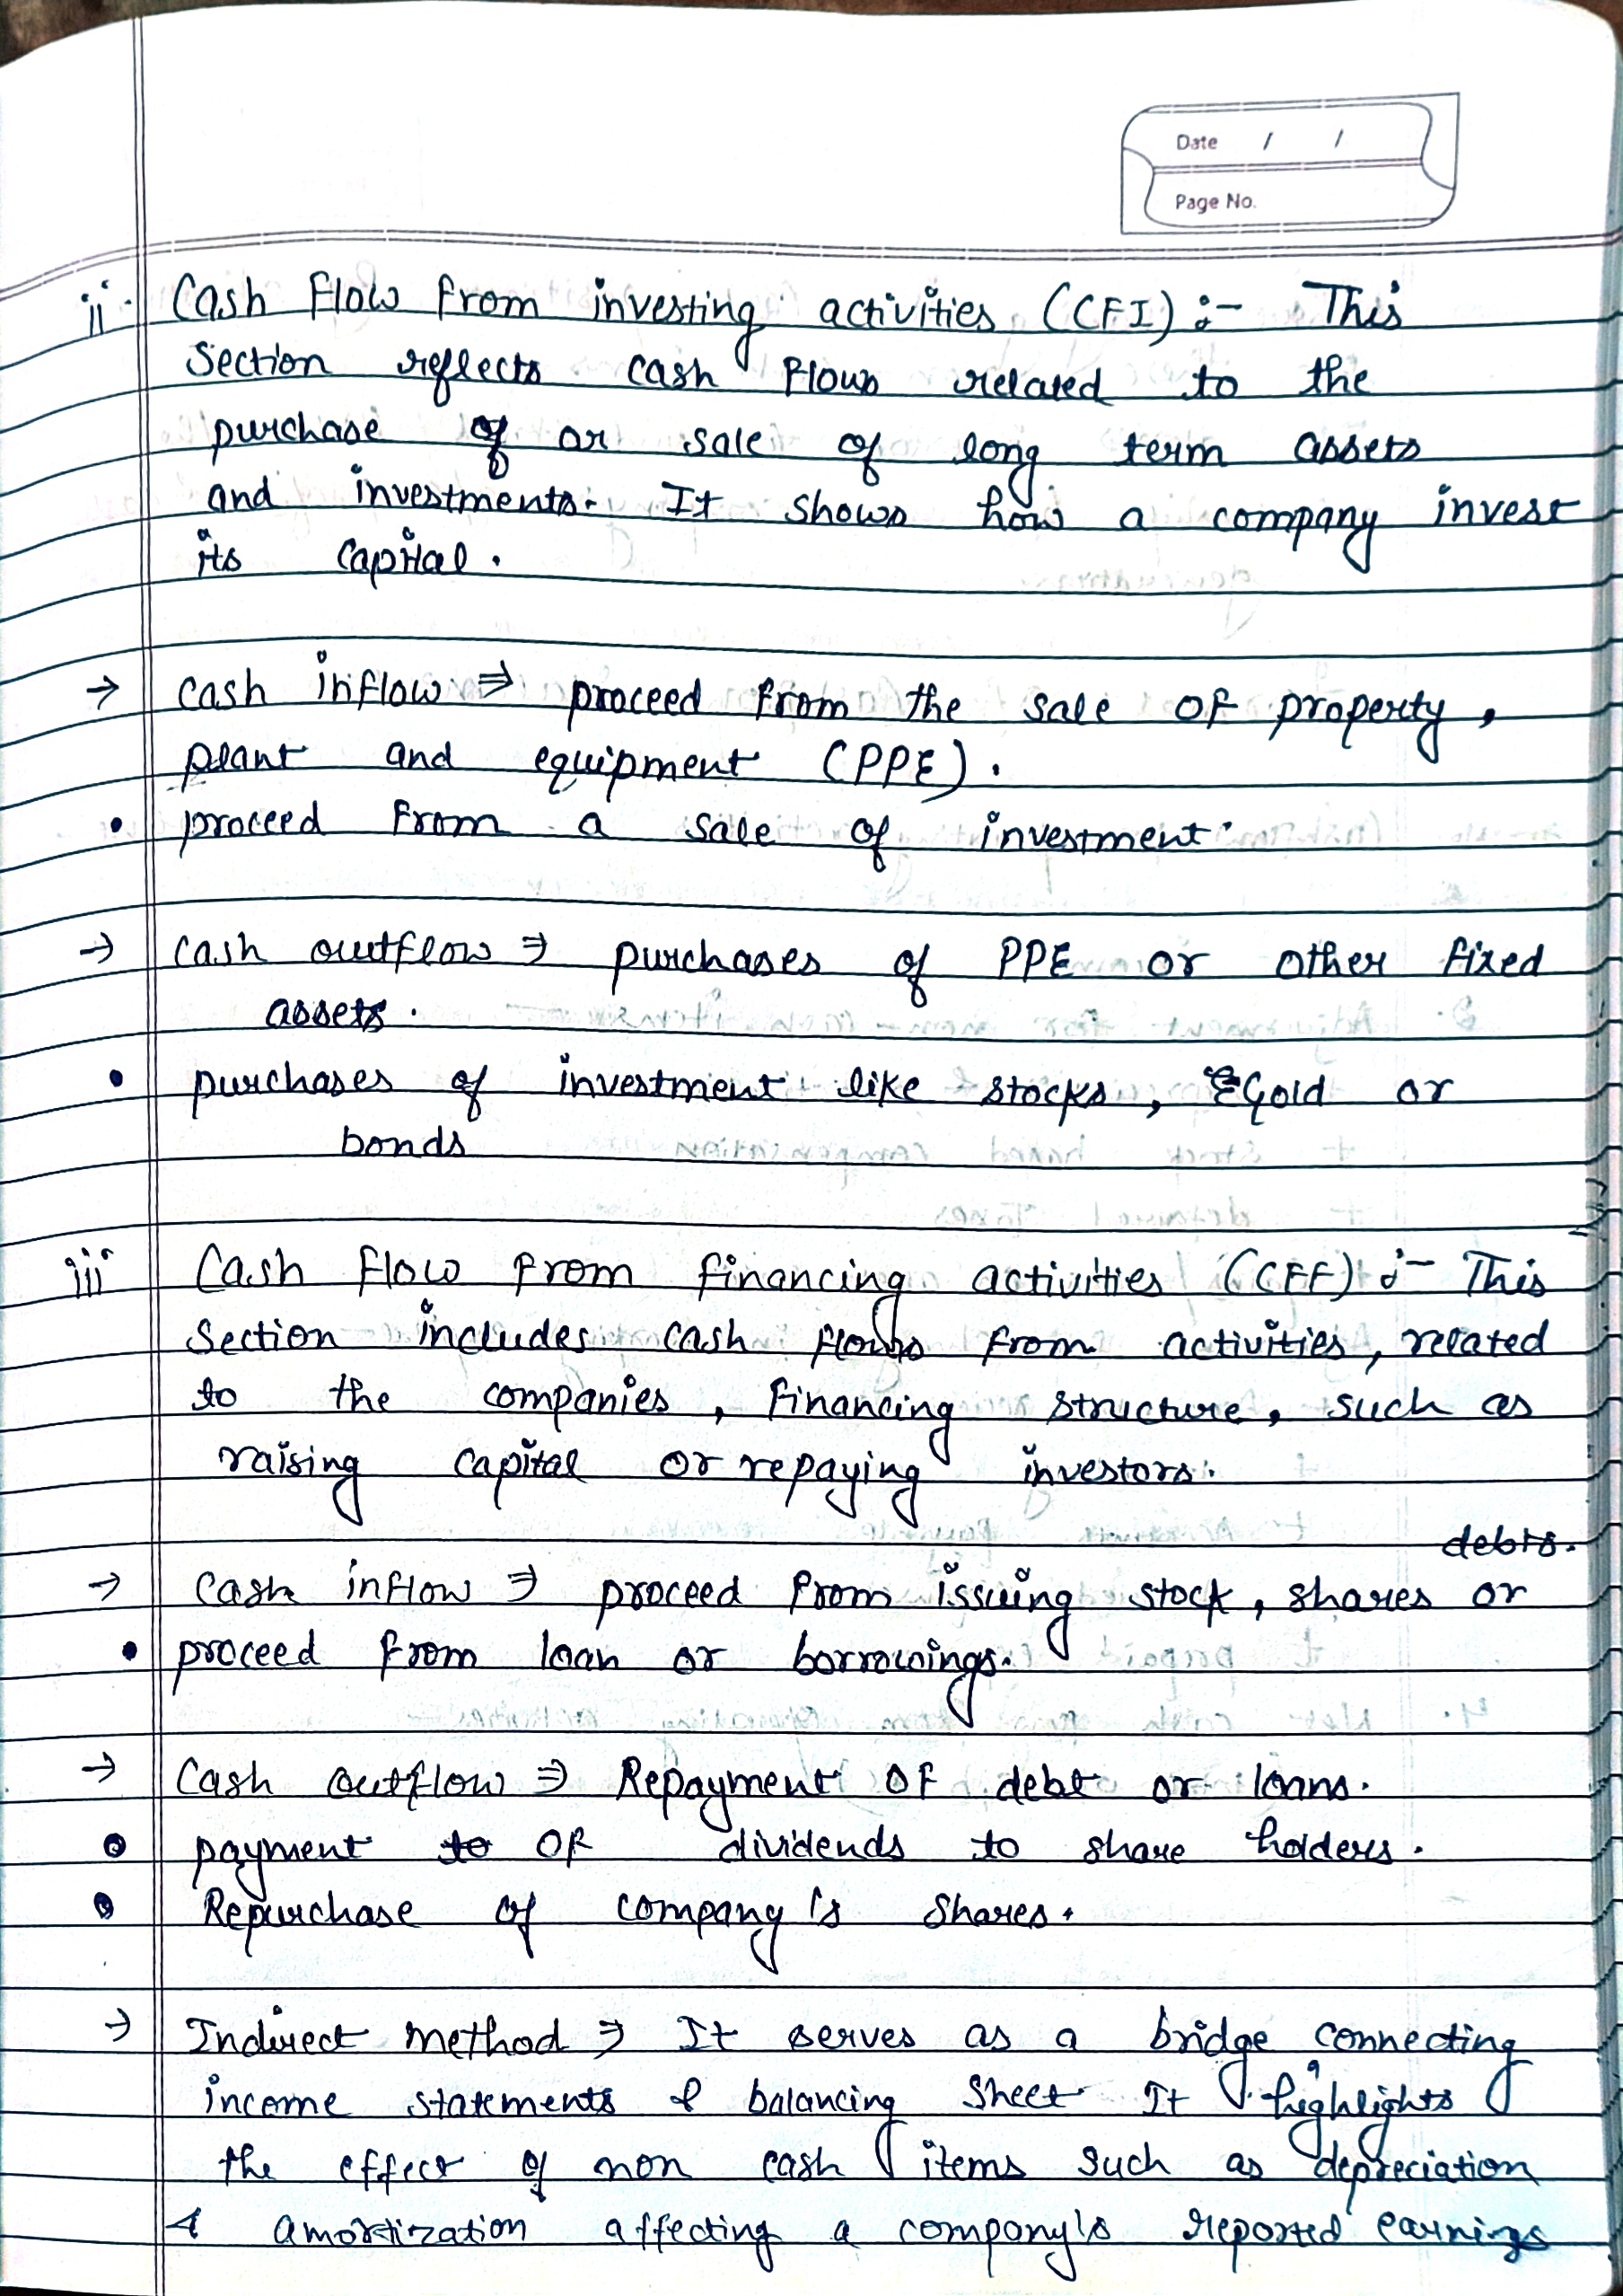 Date / /
Page No.
ii. Cash flow from investing activities (CFI) :- This
Section reflects cash flows related to the
purchase of or sale of long term assets
and investments. It shows how a company invest
its capital.
→ cash inflow ⇒ proceed from the sale of property,
plant and equipment (PPE).
• proceed from a sale of investment.
→ cash outflow ⇒ purchases of PPE or other fixed
assets.
• purchases of investment like stocks, Gold or
bonds
iii Cash flow from financing activities (CFF) :- This
Section includes cash flows from activities, related
to the companies, financing structure, such as
raising capital or repaying investors.
debts.
→ Cash inflow ⇒ proceed from issuing stock, shares or
• proceed from loan or borrowings.
→ Cash outflow ⇒ Repayment of debt or loans.
• payment to of dividends to share holders.
• Repurchase of company's shares.
→ Indirect method ⇒ It serves as a bridge connecting
income statements & balancing sheet It highlights
the effect of non cash items such as depreciation
& amortization affecting a company's reported earnings